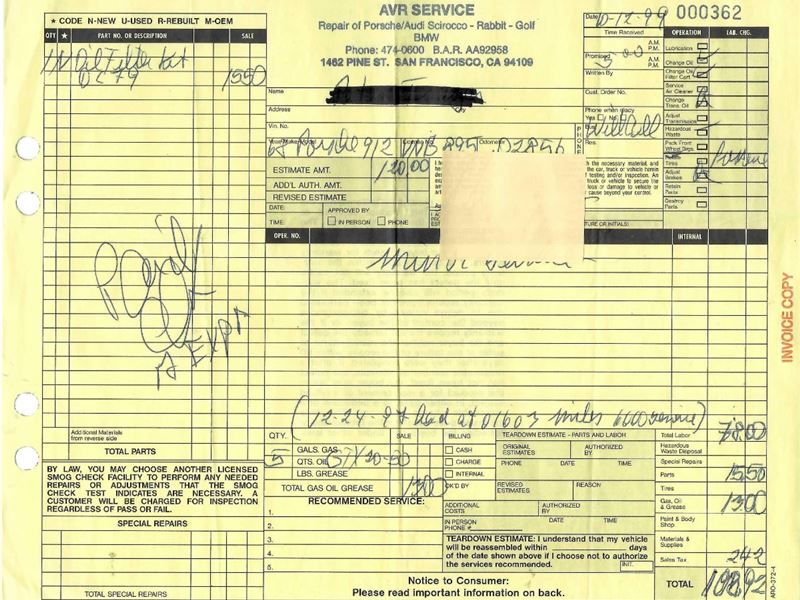 ★ CODE N-NEW U-USED R-REBUILT M-OEM
QTY ★ PART NO. OR DESCRIPTION SALE
1 N Oil Filter Kit
OC 79 1550
AVR SERVICE
Repair of Porsche/Audi Scirocco - Rabbit - Golf
BMW
Phone: 474-0600 B.A.R. AA92958
1462 PINE ST. SAN FRANCISCO, CA 94109
Date 10-12-99 000362
Time Received A.M. P.M.
Promised 3 00 A.M. P.M.
Written By
Cust. Order No.
Phone when ready
Yes No
Will Call
Res.
OPERATION LAB. CHG.
Lubrication
Change Oil
Change Oil
Filter Cart
Service
Air Cleaner
Change
Trans. Oil
Adjust
Transmission
Hazardous
Waste
Pack Front
Wheel Brgs.
Tires
Adjust
Brakes
Retain
Parts
Destroy
Parts
Name
Address
Vin. No.
Porsche 912 02856
Odometer
ESTIMATE AMT. 120.00
ADD'L AUTH. AMT.
REVISED ESTIMATE
DATE: APPROVED BY
TIME: IN PERSON PHONE
the necessary material, and
the car, truck or vehicle herein
f testing and/or inspection. An
truck or vehicle to secure the
ious or damage to vehicle or
cause beyond your control.
TURE OR INITIALS)
OPER. NO. INTERNAL
Paid
(12-24-97 Read at 01603 miles 6000 service)
INVOICE COPY
Additional Materials
from reverse side
TOTAL PARTS
BY LAW, YOU MAY CHOOSE ANOTHER LICENSED
SMOG CHECK FACILITY TO PERFORM ANY NEEDED
REPAIRS OR ADJUSTMENTS THAT THE SMOG
CHECK TEST INDICATES ARE NECESSARY. A
CUSTOMER WILL BE CHARGED FOR INSPECTION
REGARDLESS OF PASS OR FAIL.
SPECIAL REPAIRS
TOTAL SPECIAL REPAIRS
QTY. SALE
GALS. GAS
5 QTS. OIL 20-50
LBS. GREASE
TOTAL GAS OIL GREASE 1300
RECOMMENDED SERVICE:
1.
2.
3.
4.
5.
BILLING
CASH
CHARGE
INTERNAL
OK'D BY
TEARDOWN ESTIMATE - PARTS AND LABOR
ORIGINAL ESTIMATES AUTHORIZED BY
PHONE DATE TIME
REVISED ESTIMATES REASON
ADDITIONAL COSTS AUTHORIZED BY
IN PERSON
PHONE # DATE TIME
TEARDOWN ESTIMATE: I understand that my vehicle
will be reassembled within days
of the date shown above if I choose not to authorize
the services recommended. INIT.
Notice to Consumer:
Please read important information on back.
Total Labor 78.00
Hazardous
Waste Disposal
Special Repairs
Parts 15.50
Tires
Gas, Oil
& Grease 13.00
Paint & Body
Shop
Materials &
Supplies
Sales Tax 242
TOTAL 108.92
ARO-372-4